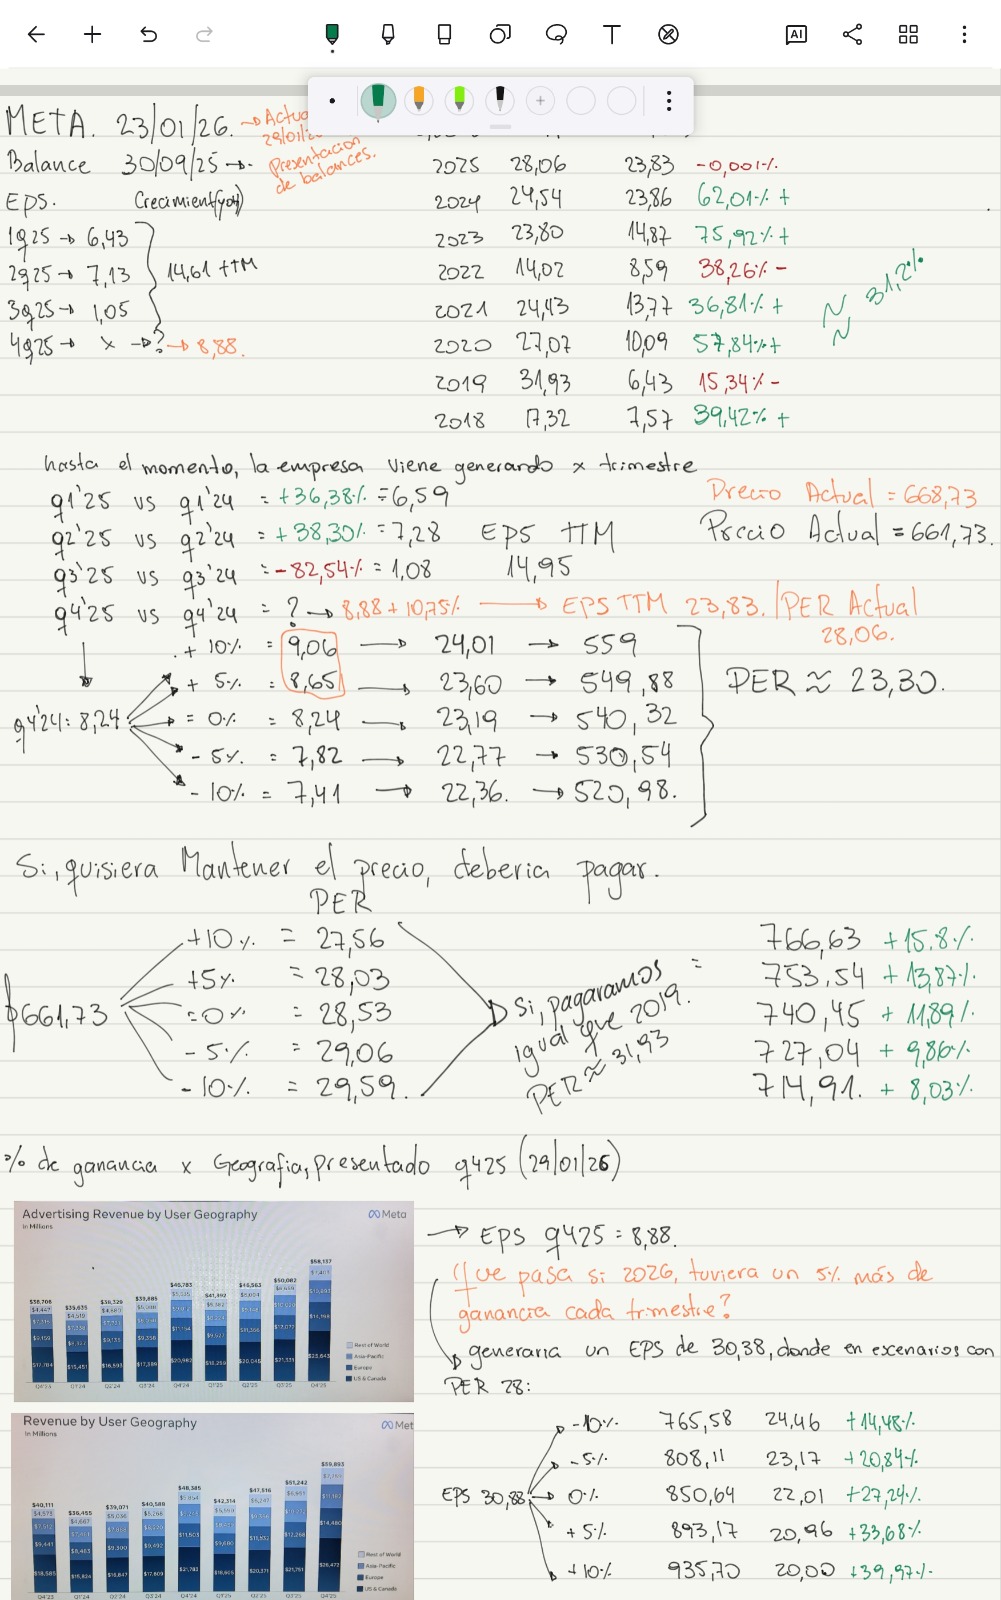 AI
META. 23/01/26.
Balance 30/09/25
Presentacion de balances.
EPS. Crecimient(yoy)
1q25 → 6,43
2q25 → 7,13
3q25 → 1,05
14,61 TTM
4q25 → x → ? → 8,88.
2025 28,06 23,83 -0,001%
2024 24,54 23,86 62,01% +
2023 23,80 14,87 75,92% +
2022 14,02 8,59 38,26% -
2021 24,43 13,77 36,81% +
2020 27,07 10,09 57,84% +
2019 31,93 6,43 15,34% -
2018 17,32 7,57 39,42% +
≈ 31,2%
hasta el momento, la empresa viene generando x trimestre
q1'25 vs q1'24 = +36,38% = 6,59
q2'25 vs q2'24 = +38,30% = 7,28 EPS TTM
q3'25 vs q3'24 = -82,54% = 1,08 14,95
Precio Actual = 668,73
Precio Actual = 661,73.
q4'25 vs q4'24 = ? → 8,88 + 10,75% → EPS TTM 23,83. | PER Actual
28,06.
+ 10% = 9,06 → 24,01 → 559
+ 5% = 8,65 → 23,60 → 549,88
q4'24: 8,24 = 0% = 8,24 → 23,19 → 540,32
- 5% = 7,82 → 22,77 → 530,54
- 10% = 7,41 → 22,36. → 520,98.
PER ≈ 23,30.
Si, quisiera Mantener el precio, deberia pagar.
PER
$661,73
+10% = 27,56
+5% = 28,03
=0% = 28,53
-5% = 29,06
-10% = 29,59.
Si, pagaramos
igual que 2019.
PER ≈ 31,93
=
766,63 +15.8%
753,54 +13,87%
740,45 + 11,89%
727,04 + 9,86%
714,91. + 8,03%
% de ganancia x Geografia, presentado q425 (29/01/26)
Advertising Revenue by User Geography
In Millions
Meta
Rest of World
Asia-Pacific
Europe
US & Canada
Q4'23 Q1'24 Q2'24 Q3'24 Q4'24 Q1'25 Q2'25 Q3'25 Q4'25
→ EPS q425 = 8,88.
Que pasa si 2026, tuviera un 5% más de
ganancia cada trimestre?
generaria un EPS de 30,38, donde en escenarios con
PER 28:
Revenue by User Geography
In Millions
Met
$40,111 $36,455 $39,071 $40,589 $48,385 $42,314 $47,516 $51,242 $59,893
Rest of World
Asia-Pacific
Europe
US & Canada
EPS 30,88
-10% 765,58 24,46 +14,48%
-5% 808,11 23,17 +20,84%
0% 850,64 22,01 +27,24%
+5% 893,17 20,96 +33,68%
+10% 935,70 20,00 +39,97%